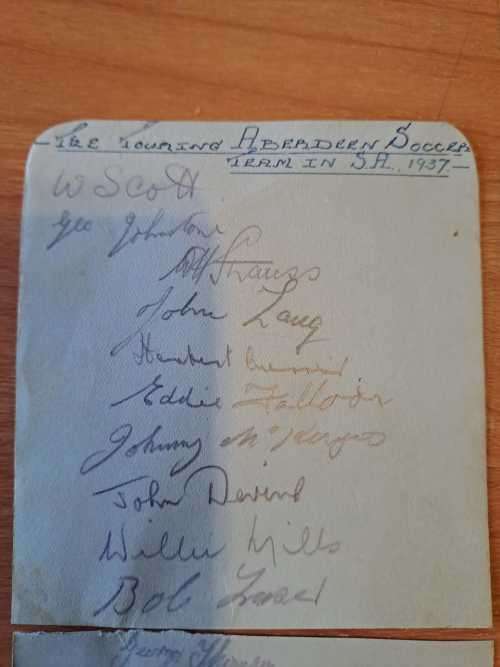 THE TOURING ABERDEEN SOCCER
TEAM IN S.A. 1937.
W Scott
Geo Johnstone
W Strauss
John Lang
Herbert
Eddie Falloon
Johnny McKenzie
John Devine
Willie Mills
Bob
George